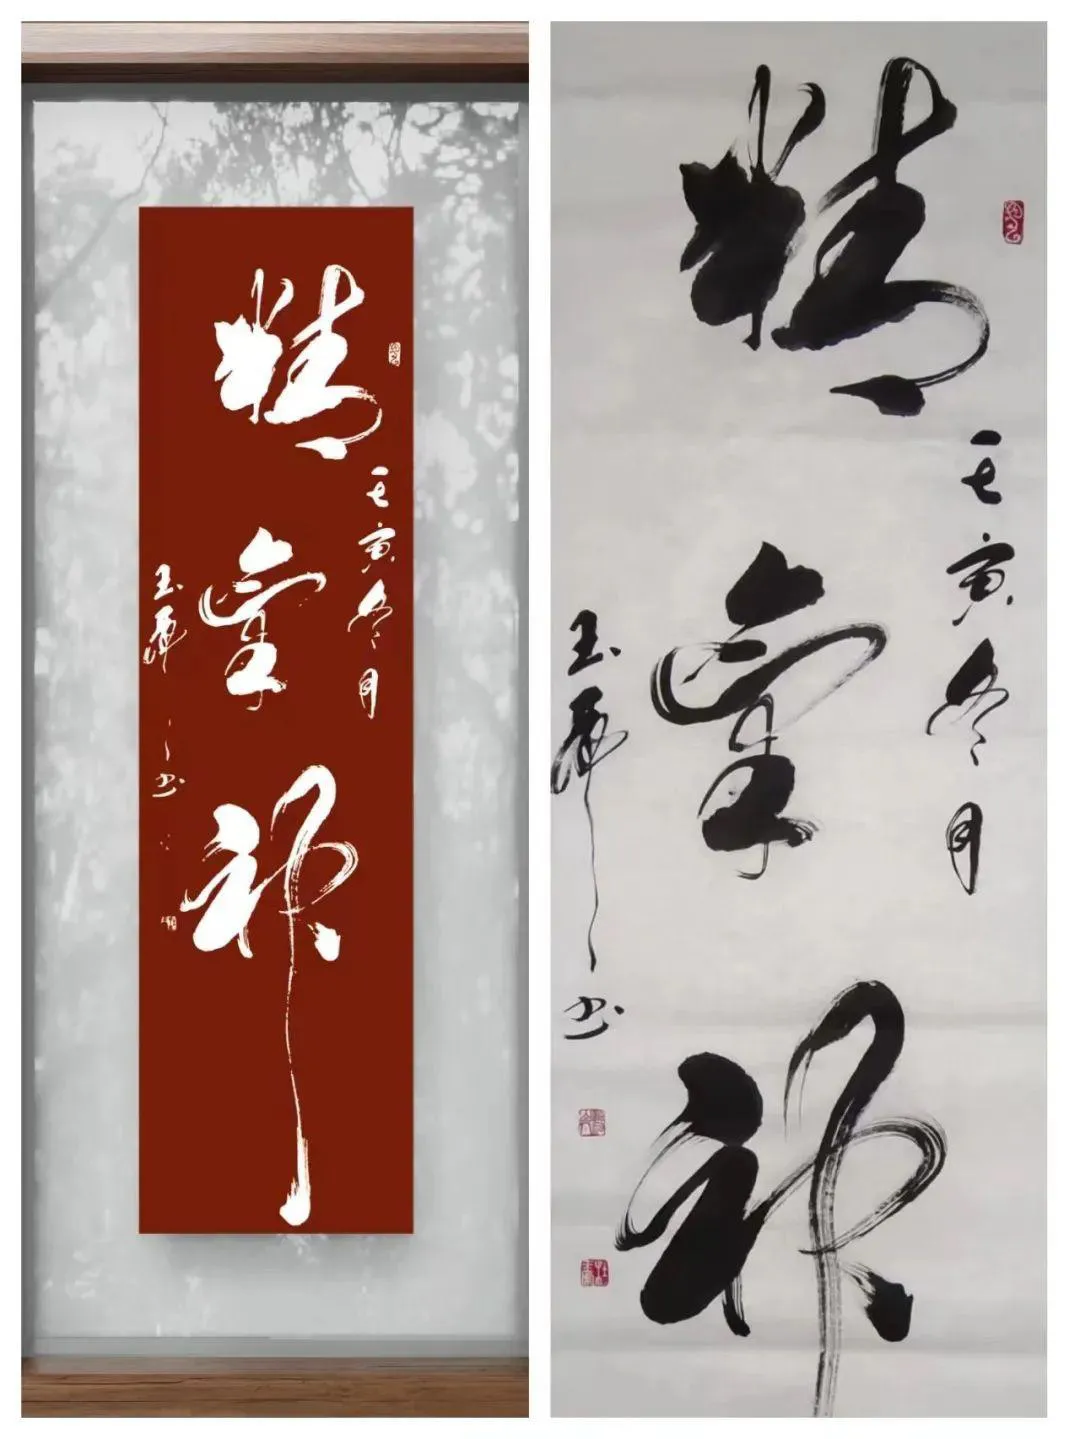 精氣神
壬寅冬月
玉 书
精氣神
壬寅冬月
玉 书